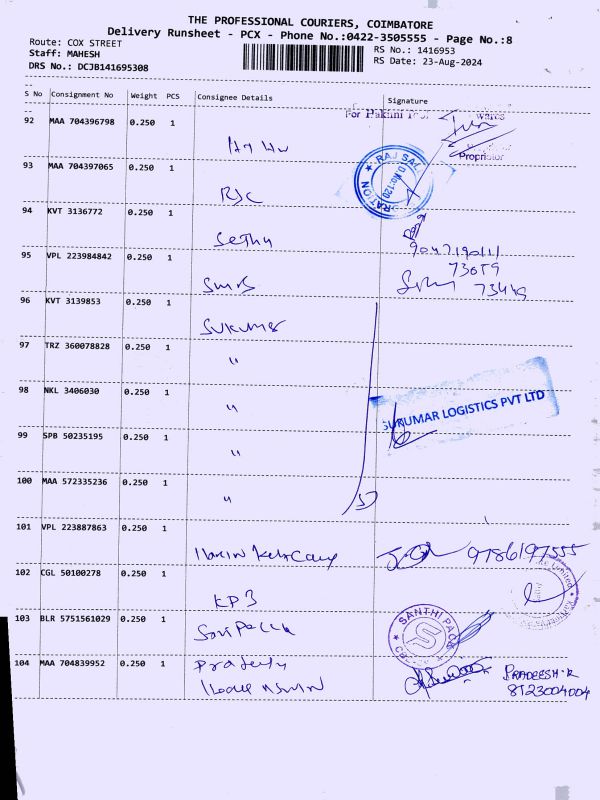 THE PROFESSIONAL COURIERS, COIMBATORE
Delivery Runsheet - PCX - Phone No.:0422-3505555 - Page No.:8
Route: COX STREET
RS No.: 1416953
Staff: MAHESH
RS Date: 23-Aug-2024
DRS No.: DCJB141695308
S No Consignment No Weight PCS Consignee Details Signature
92 MAA 704396798 0.250 1
For
Proprietor
93 MAA 704397065 0.250 1
RAJ SAL
94 KVT 3136772 0.250 1
Sethu
95 VPL 223984842 0.250 1
73449
96 KVT 3139853 0.250 1
Sukumar
97 TRZ 360078828 0.250 1
"
98 NKL 3406030 0.250 1
"
SUKUMAR LOGISTICS PVT LTD
99 SPB 50235195 0.250 1
"
100 MAA 572335236 0.250 1
"
101 VPL 223887863 0.250 1
9786197555
102 CGL 50100278 0.250 1
KPB
103 BLR 5751561029 0.250 1
SANTHI PACK
104 MAA 704839952 0.250 1
PRADEESH.R
8723004004